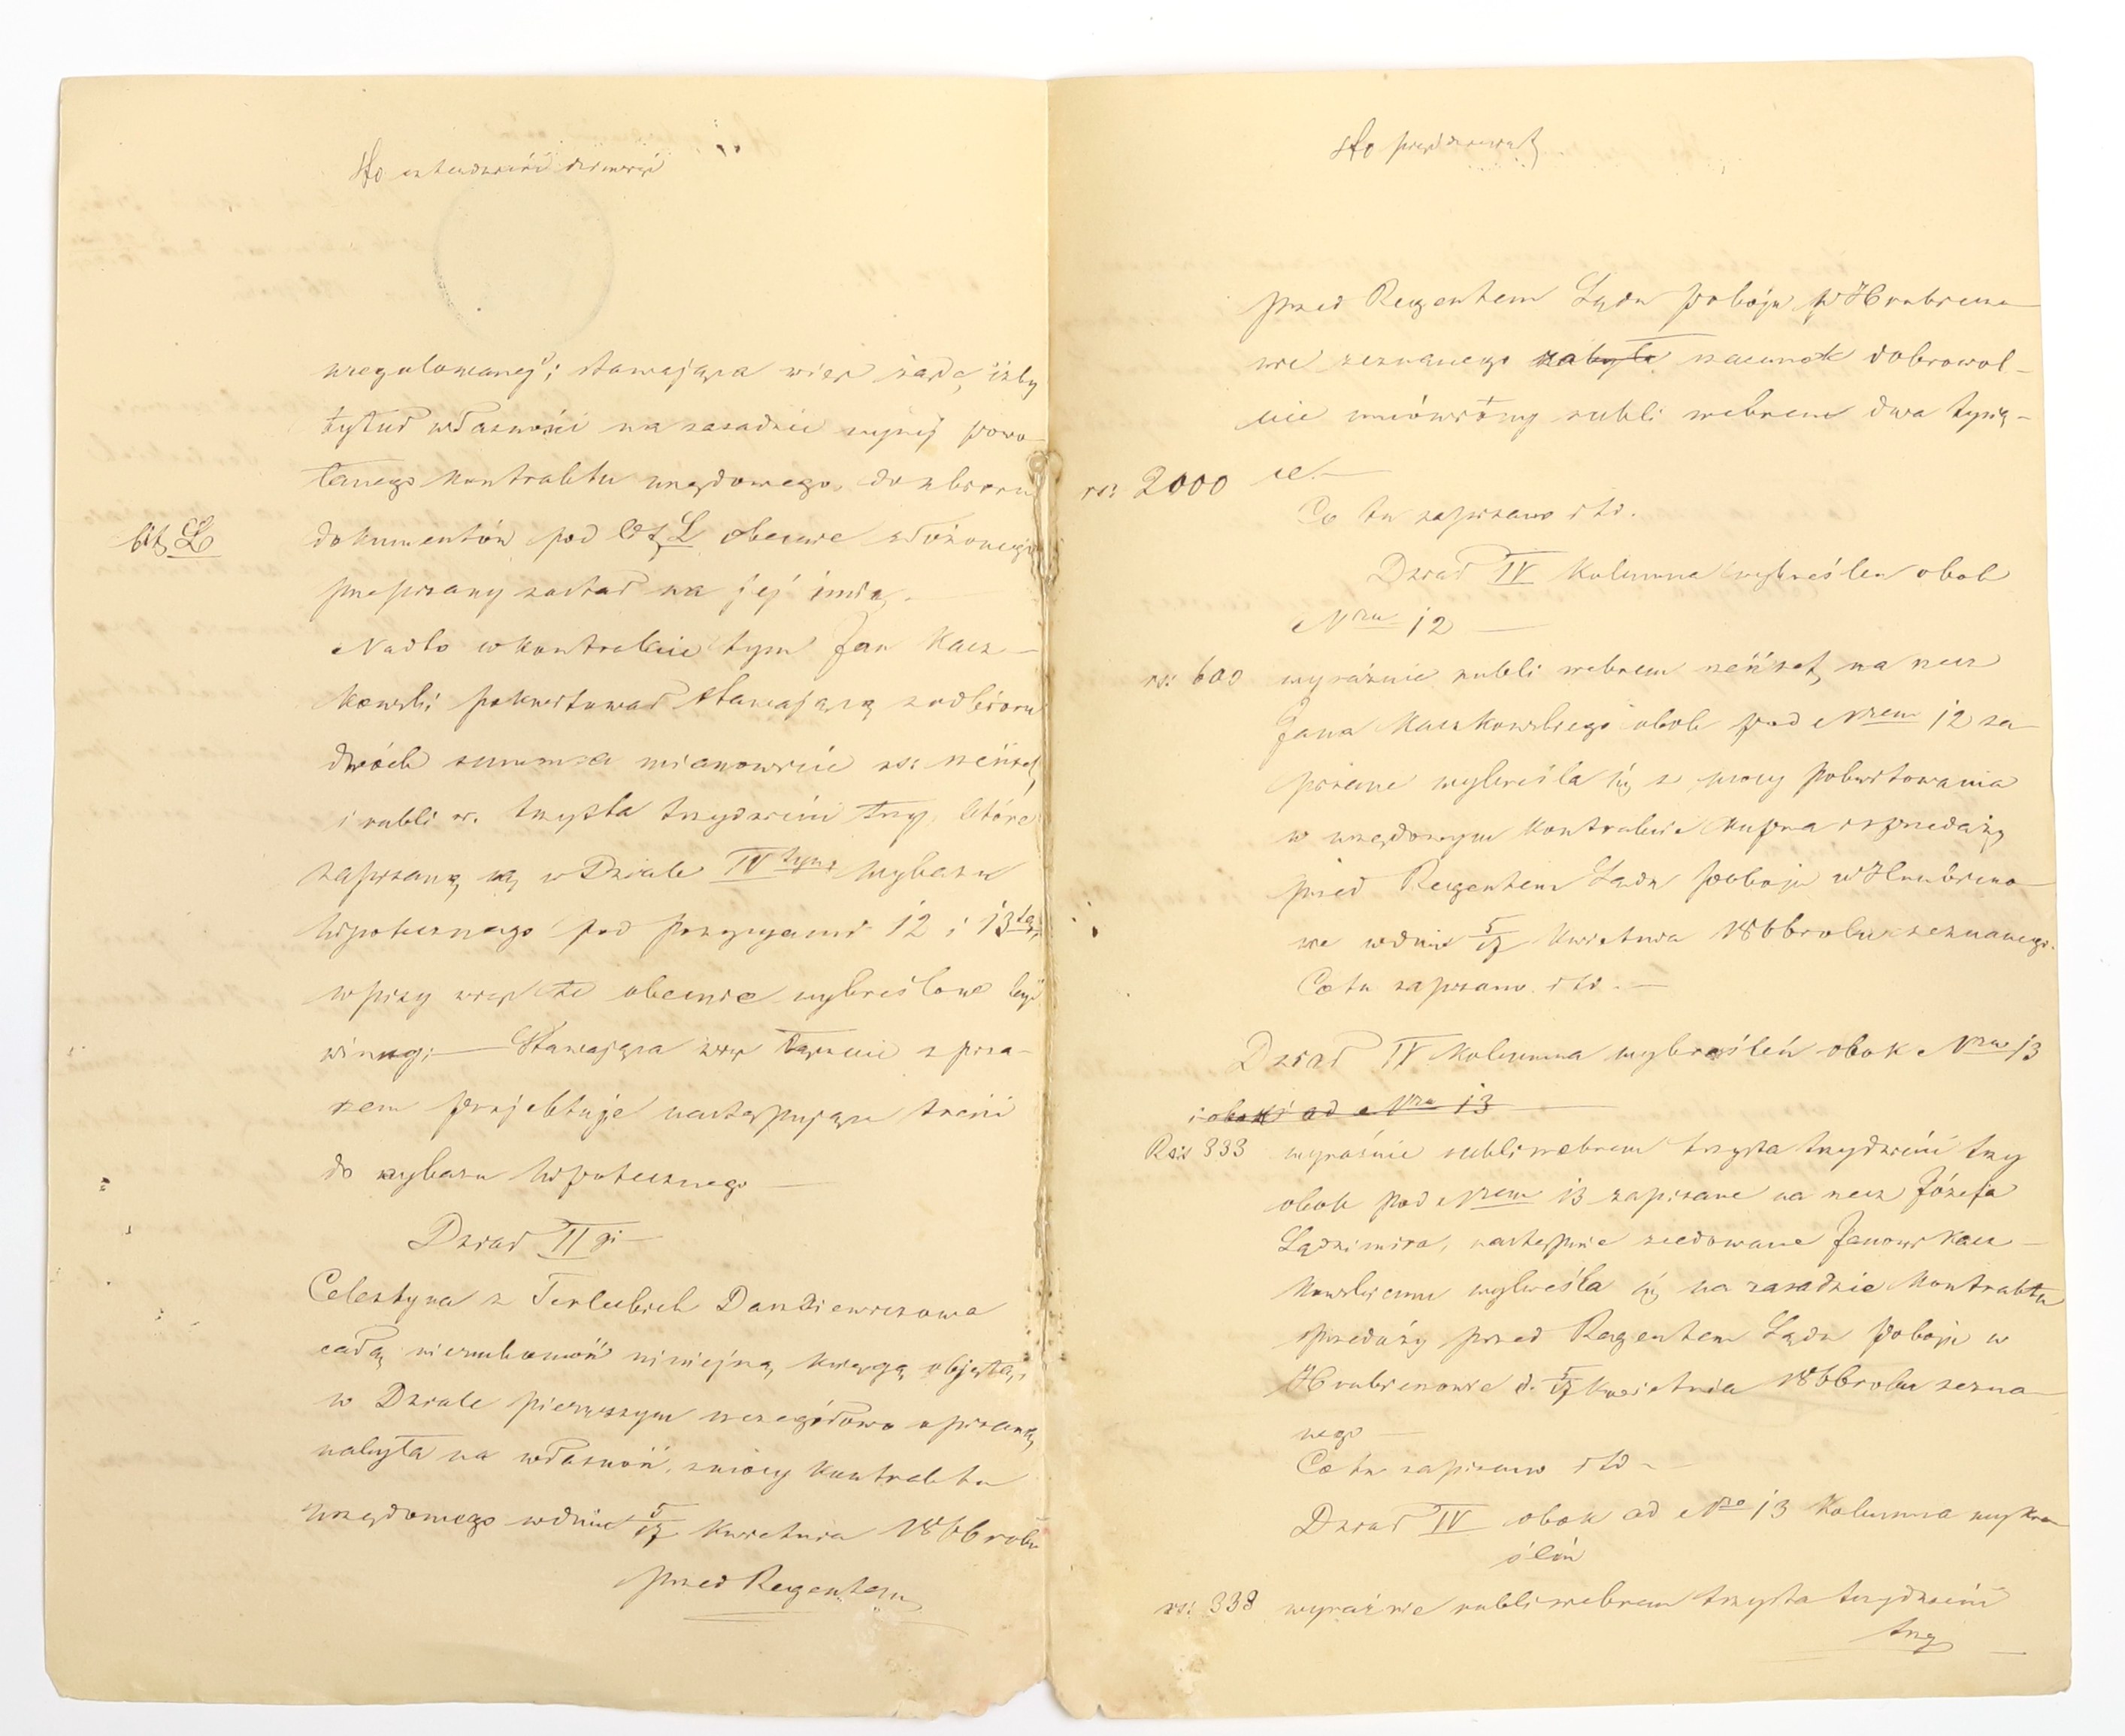 Sto czterdzieści dziewięć
uregulowanej; stawająca więc żąda, iżby
tytuł własności na zasadzie wyżej powo-
łanego kontraktu urzędowego do zbioru
lit. L
dokumentów pod lit. L obecnie złożonego
przepisany został na jej imię.
Nadto w kontrakcie tym Jan Kacz-
kowski pokwitował stawającą z odbioru
dwóch summ a mianowicie rs: sześćset
i rubli sr. trzysta trzydzieści trzy, które
zapisane są w Dziale IV tym wykazu
hypotecznego pod pozycyami 12 i 13 tą,
wpisy więc te obecnie wykreślone być
winny; Stawająca więc łącznie z pisa-
rzem projektuje następujące treści
do wykazu hypotecznego
Dział II gi
Celestyna z Terleckich Dankiewiczowa
całą nieruchomość niniejszą księgą objętą,
w Dziale pierwszym szczegółowo opisaną
nabyła na własność, z mocy kontraktu
urzędowego w dniu 5/17 Kwietnia 1866 roku
przed Regentem
Sto pięćdziesiąt
przed Regentem Sądu Pokoju w Hrubieszo-
wie zeznanego nabyła szacunek dobrowol-
nie umówiony rubli srebrem dwa tysią-
rs: 2000 ce.
Co tu zapisano itd.
Dział IV Kolumna wykreśleń obok
Nru 12
rs: 600 wyraźnie rubli srebrem sześćset, na rzecz
Jana Kaczkowskiego obok pod Nrem 12 za-
pisane wykreśla się z mocy pokwitowania
w urzędowym kontrakcie kupna i sprzedaży
przed Regentem Sądu Pokoju w Hrubieszo-
wie w dniu 5/17 Kwietnia 1866 roku zeznanego.
Co tu zapisano itd.
Dział IV Kolumna wykreśleń obok Nru 13
i obok ad Nro 13
Rs: 333 wyraźnie rubli srebrem trzysta trzydzieści trzy
obok pod Nrem 13 zapisane na rzecz Józefa
Sądzimira, następnie scedowane Janowi Kacz-
kowskiemu wykreśla się na zasadzie Kontraktu
sprzedaży przed Regentem Sądu Pokoju w
Hrubieszowie d. 5/17 Kwietnia 1866 roku zezna-
nego
Co tu zapisano itd
Dział IV obok ad Nro 13 Kolumna wykre-
śleń
rs: 333 wyraźnie rubli srebrem trzysta trzydzieści
trzy